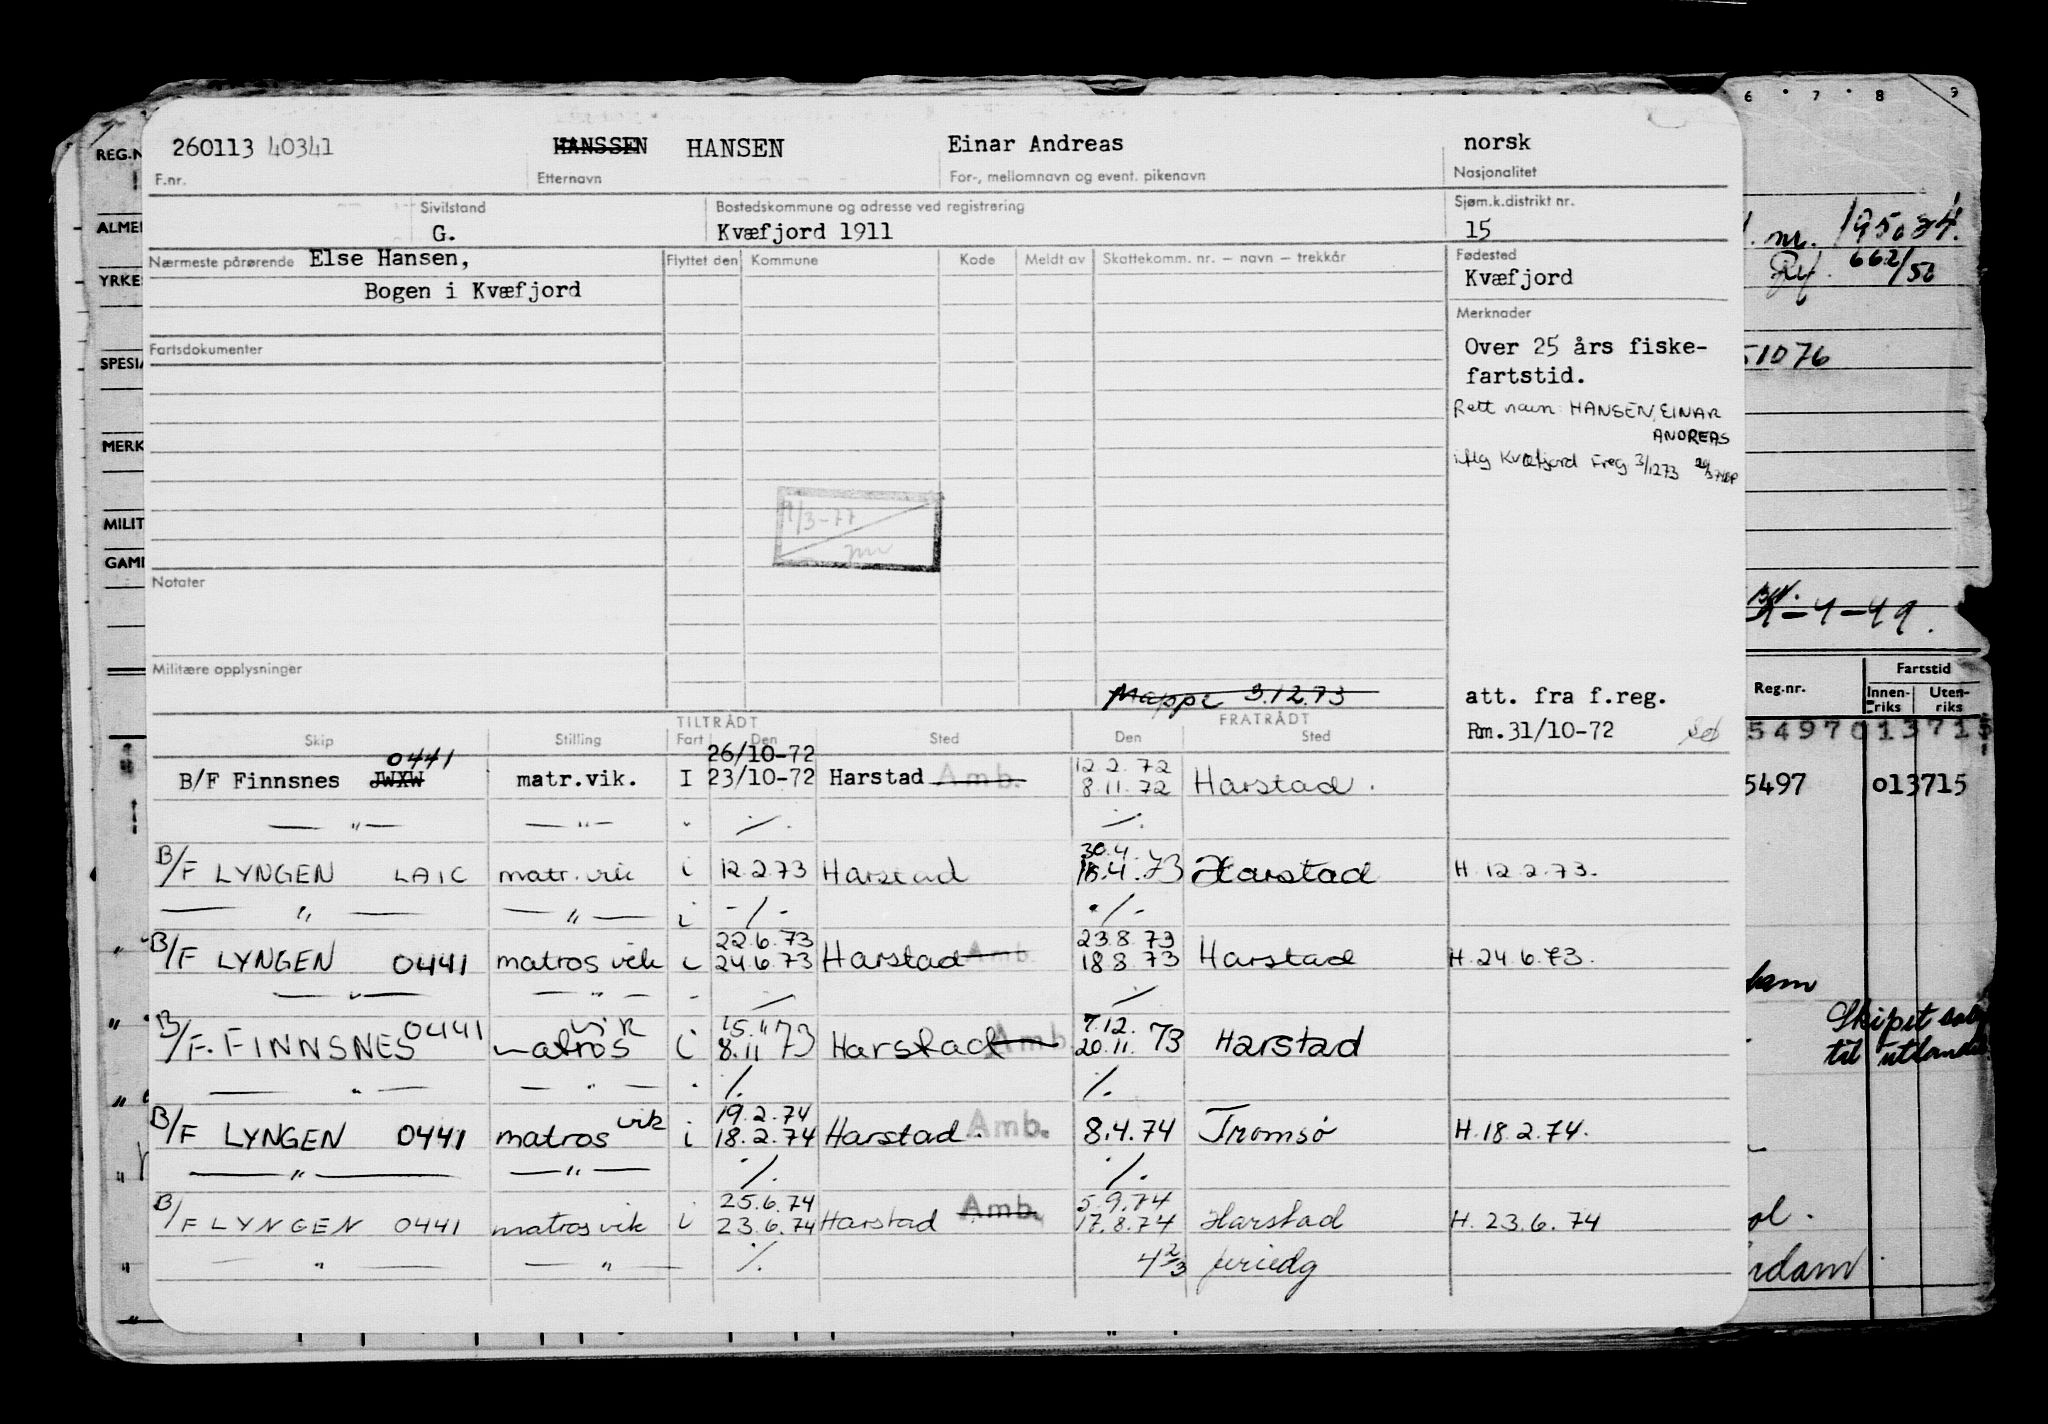 260113 40341 HANSSEN HANSEN Einar Andreas norsk
F.nr. Etternavn For-, mellomnavn og event. pikenavn Nasjonalitet
Sivilstand Bostedskommune og adresse ved registrering Sjøm.k.distrikt nr.
G. Kvæfjord 1911 15
Nærmeste pårørende Else Hansen, Flyttet den Kommune Kode Meldt av Skattekomm. nr. – navn – trekkår Fødested
Bogen i Kvæfjord Kvæfjord
Merknader
Fartsdokumenter Over 25 års fiske-
fartstid.
Rett navn: HANSEN, EINAR
ANDREAS
iflg Kvæfjord Freg 3/1273
11/3-77
Notater
Militære opplysninger
Mappe 3.12.73 att. fra f.reg.
TILTRÅDT FRATRÅDT
Skip Stilling Fart Den Sted Den Sted Rm. 31/10-72
0441 26/10-72 12.2.72
B/F Finnsnes JWXW matr.vik. I 23/10-72 Harstad Amb. 8.11.72 Harstad.
— " — — " — " ·/. ·/.
30.4.
B/F LYNGEN LAIC matr. vik i 12.2.73 Harstad 18.4.73 Harstad H. 12.2.73.
— " — — " — i -/- ·/-
22.6.73 23.8.73
B/F LYNGEN 0441 matros vik i 24.6.73 Harstad Amb. 18.8.73 Harstad H. 24.6.73.
— " — — " — - ·/. ·/.
vik 15.11 7.12.
B/F. FINNSNES 0441 matros i 8.11 73 Harstad Amb. 20.11. 73 Harstad
— " — — " — · ·/. ·/.
19.2.74
B/F LYNGEN 0441 matros vik i 18.2.74 Harstad. Amb. 8.4.74 Tromsø H. 18.2.74.
— " — — " — ·/. ·/.
25.6.74 5.9.74
B/F LYNGEN 0441 matros vik i 23.6.74 Harstad Amb. 17.8.74 Harstad H. 23.6.74
— " — — " — ·/. 4 2/3 feriedg
REG.N
ALME
YRKE
SPESIA
MERK
MILIT
GAM
6 7 8 9
nr. 195034.
Ref. 662/50
51076
-9-49.
Fartstid
Reg.nr. Innen-riks Uten-riks
5497013715
5497 013715
Skipet solgt
til utlandet